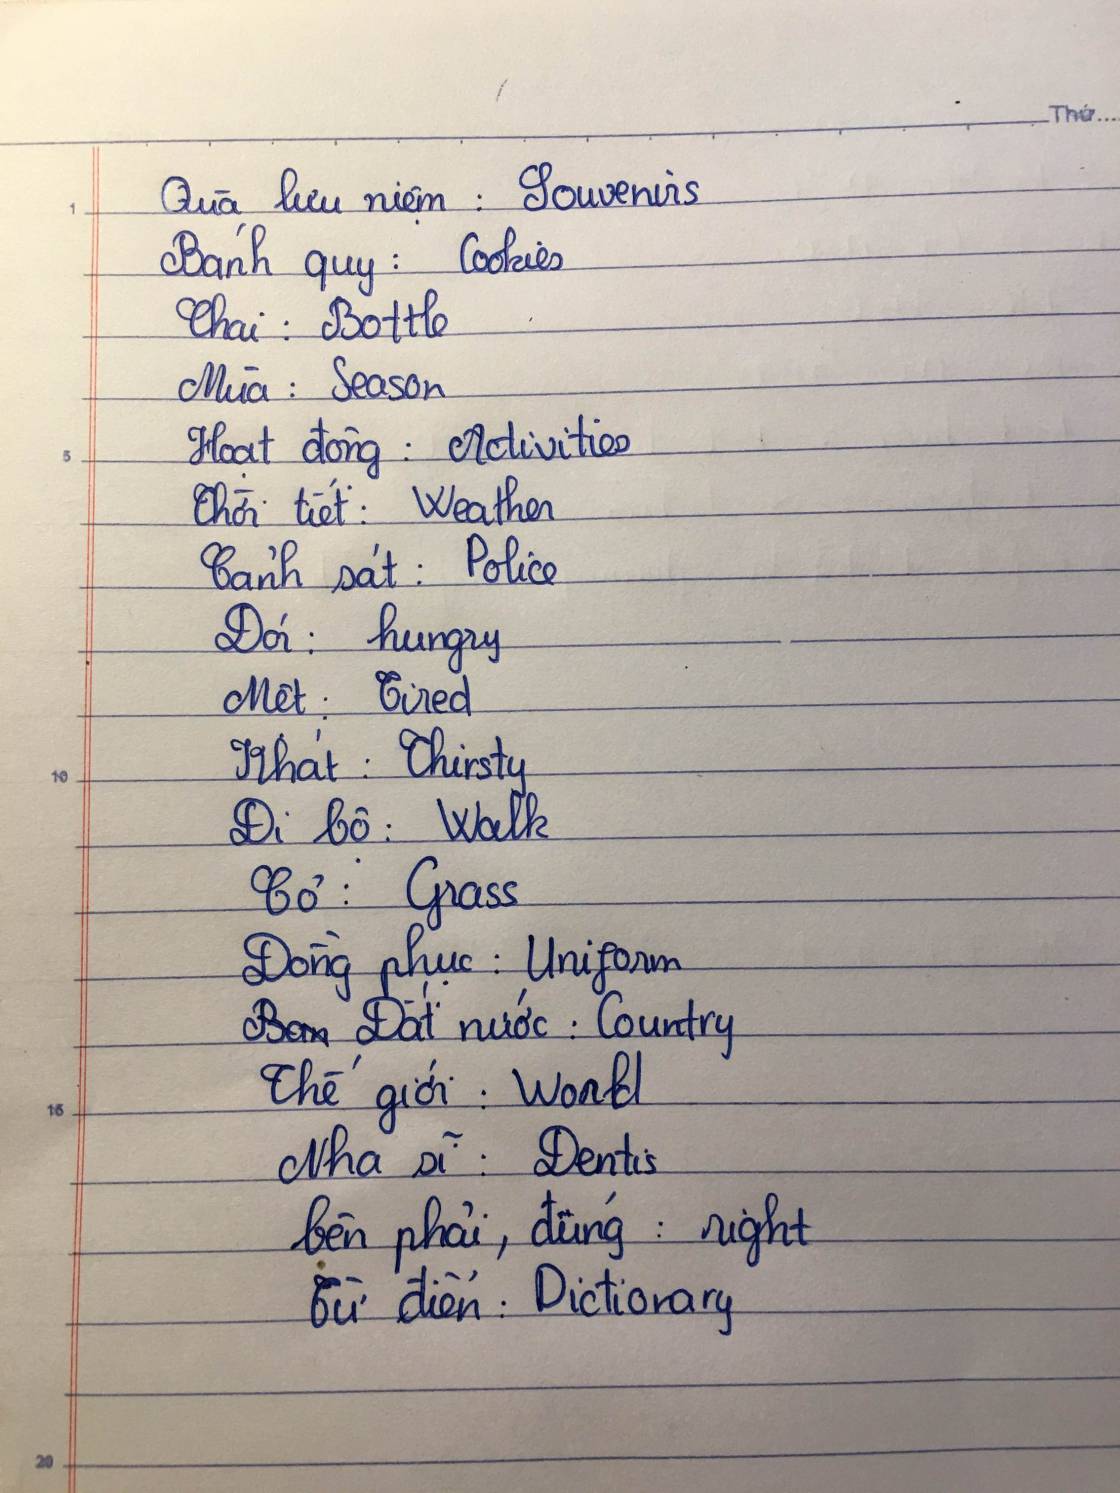 Thứ....
1 Quà lưu niệm : Souvenirs
Bánh quy : Cookies
Chai : Bottle
Mùa : Season
5 Hoạt động : Activities
Thời tiết : Weather
Cảnh sát : Police
Đói : hungry
Mệt : Tired
10 Khát : Thirsty
Đi bộ : Walk
Cỏ : Grass
Đồng phục : Uniform
Đất nước : Country
15 Thế giới : World
Nha sĩ : Dentis
bên phải, đúng : right
Từ điển : Dictionary
20